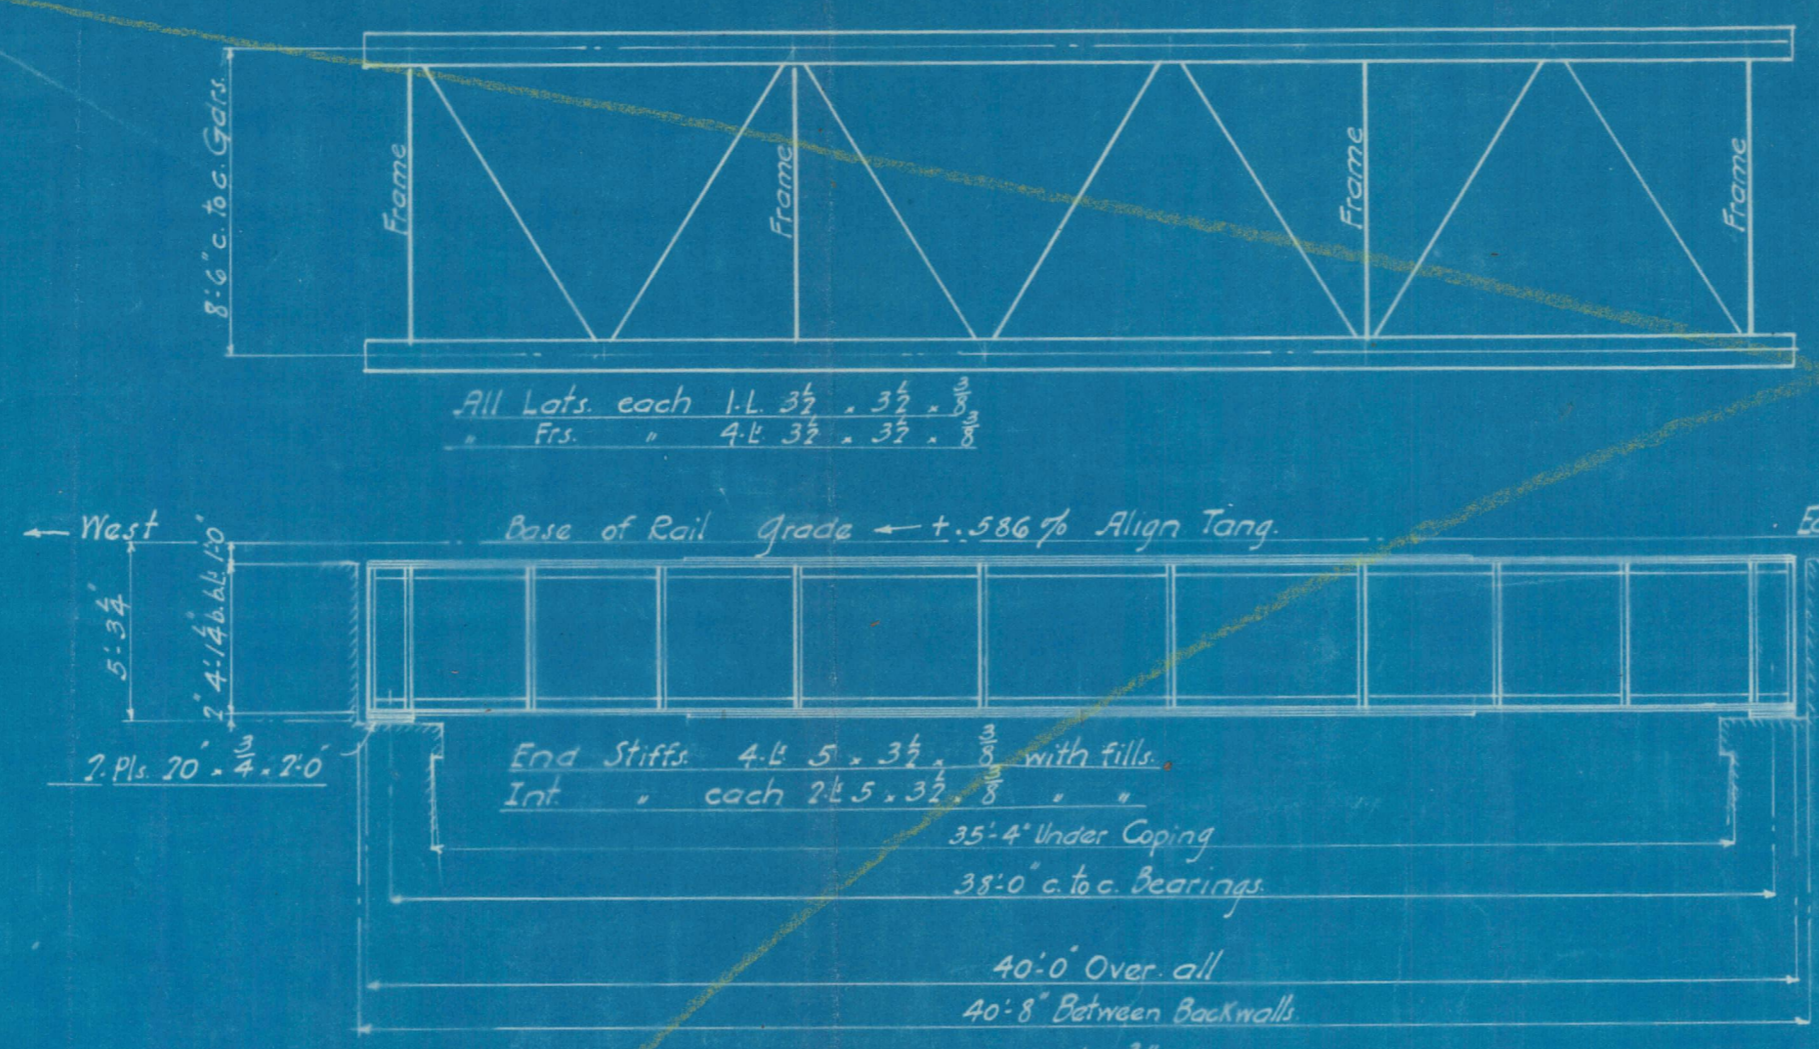 8'-6" c. to c. Gdrs.
Frame
Frame
Frame
Frame
All Lats. each 1-L. 3½ x 3½ x ⅜
" Frs. " 4-Ls 3½ x 3½ x ⅜
← West
Base of Rail Grade ← +.586% Align Tang.
5'-3¼"
2" 4'-1¼" b. to b. Ls 1'-0"
2-Pls. 20" x ¾ x 2'-0"
End Stiffs. 4-Ls 5 x 3½ x ⅜ with fills.
Int. " each 2-Ls 5 x 3½ x ⅜ " "
35'-4" Under Coping
38'-0" c. to c. Bearings.
40'-0" Over all
40'-8" Between Backwalls.